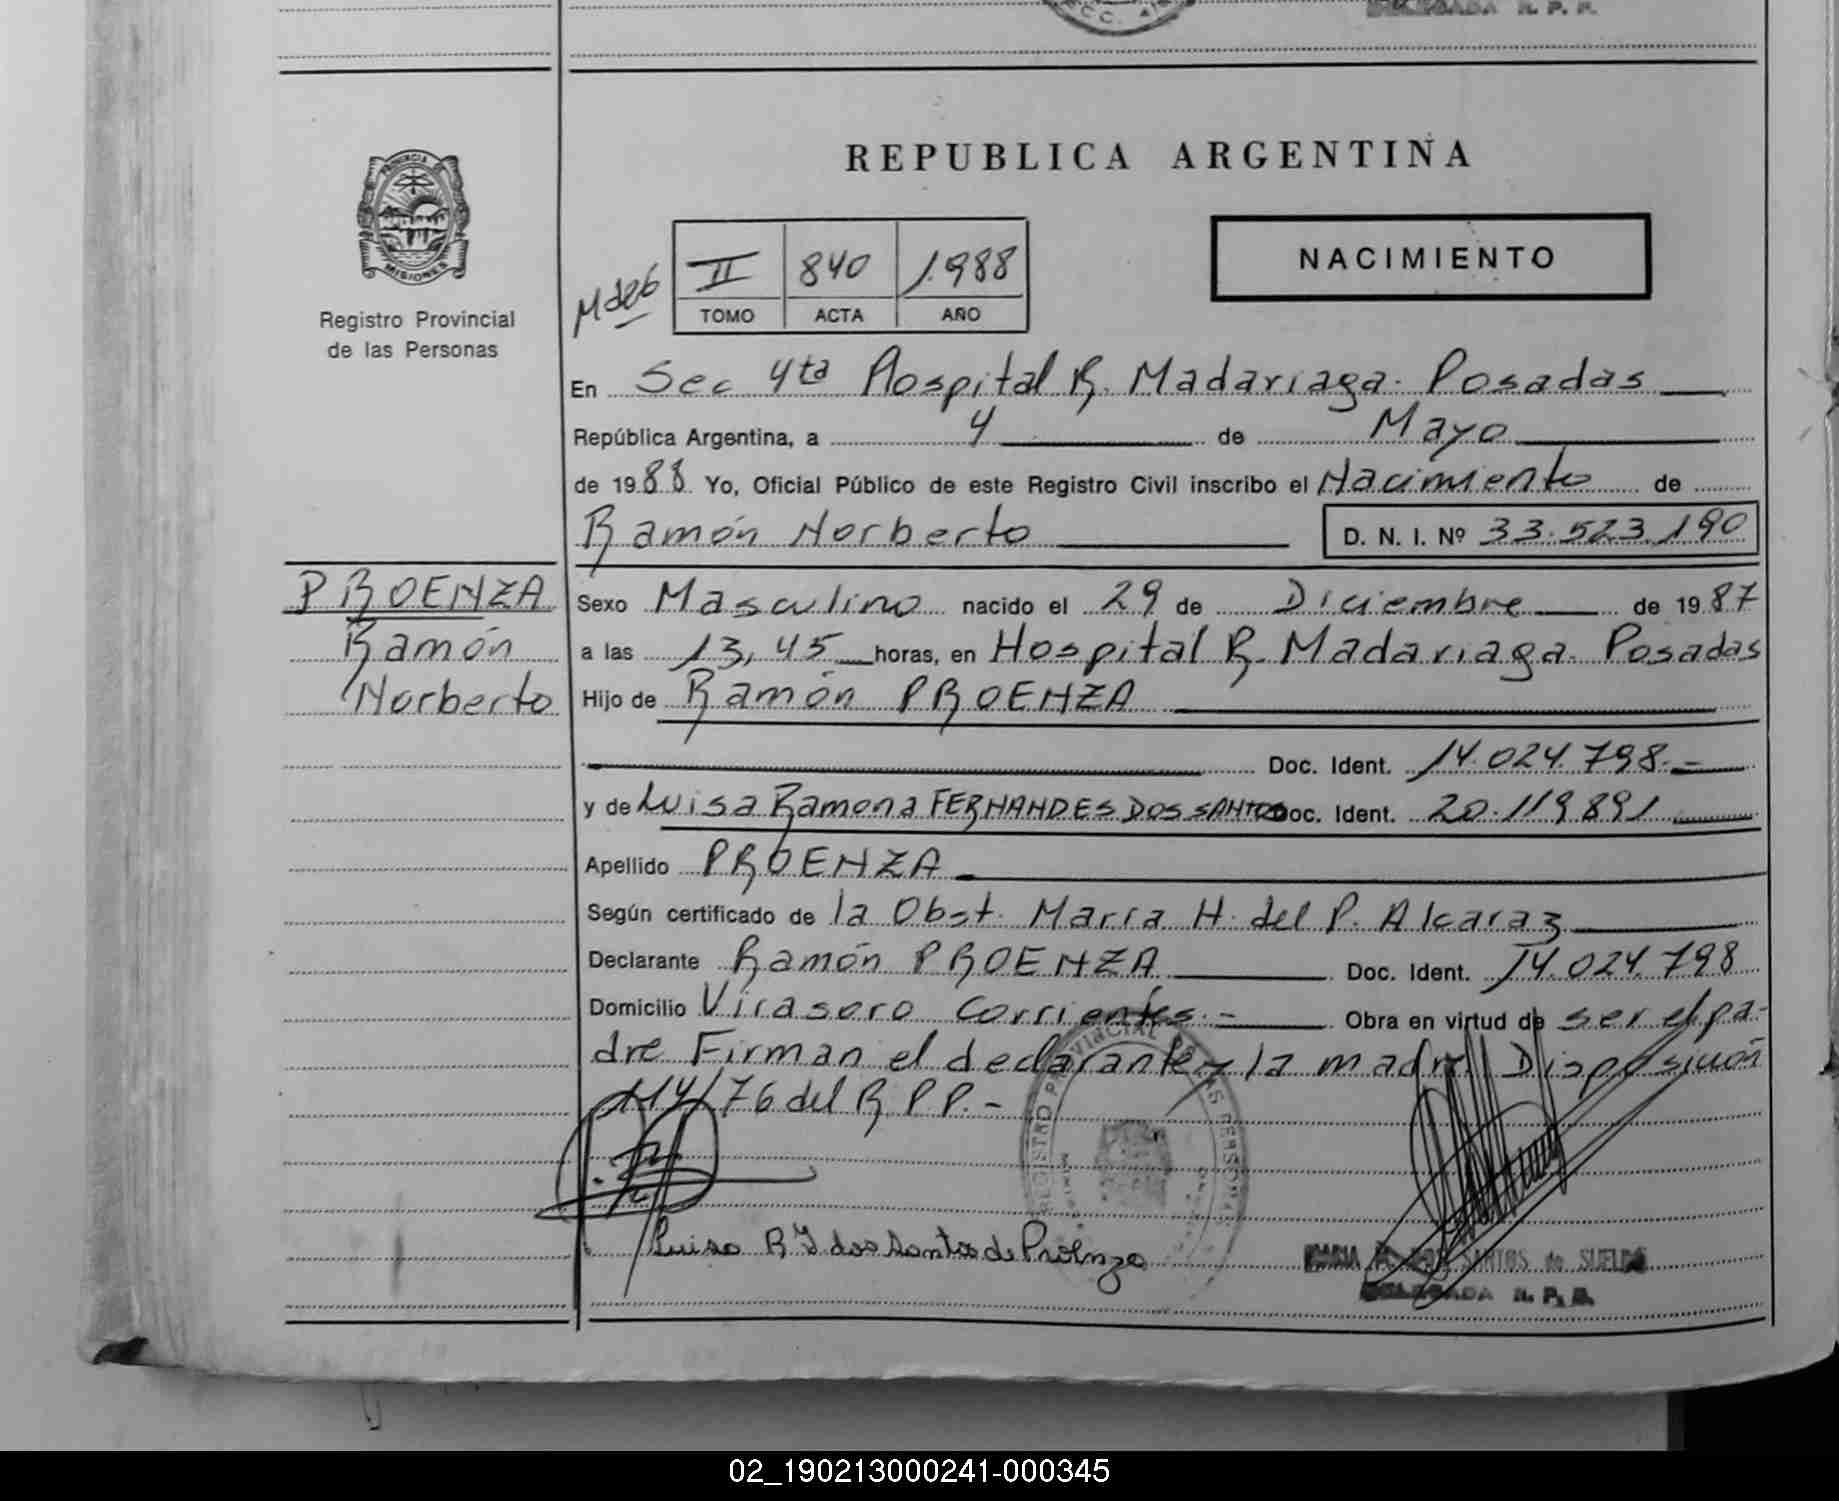 REPUBLICA ARGENTINA
PROVINCIA DE
MISIONES
Registro Provincial
de las Personas
II 840 1.988
TOMO ACTA AÑO
NACIMIENTO
En Sec 4ta Hospital R. Madariaga. Posadas
República Argentina, a 4 de Mayo
de 1988 Yo, Oficial Público de este Registro Civil inscribo el Nacimiento de
Ramón Norberto D. N. I. Nº 33.523.190
PROENZA
Ramón
Norberto
Sexo Masculino nacido el 29 de Diciembre de 1987
a las 13,45 horas, en Hospital R. Madariaga. Posadas
Hijo de Ramón PROENZA
Doc. Ident. 14.024.798.-
y de Luisa Ramona FERNANDES DOS SANTOS Doc. Ident. 20.119.891
Apellido PROENZA
Según certificado de la Obst. María H. del P. Alcaraz
Declarante Ramón PROENZA Doc. Ident. 14.024.798
Domicilio Virasoro Corrientes.- Obra en virtud de ser el pa-
dre Firman el declarante y la madre Disposición
114/76 del R.P.P.-
REGISTRO PROVINCIAL DE LAS PERSONAS
Luisa R F dos Santos de Proenza
MARIA DOS SANTOS de SUELDO
DELEGADA R. P. P.
02_190213000241-000345